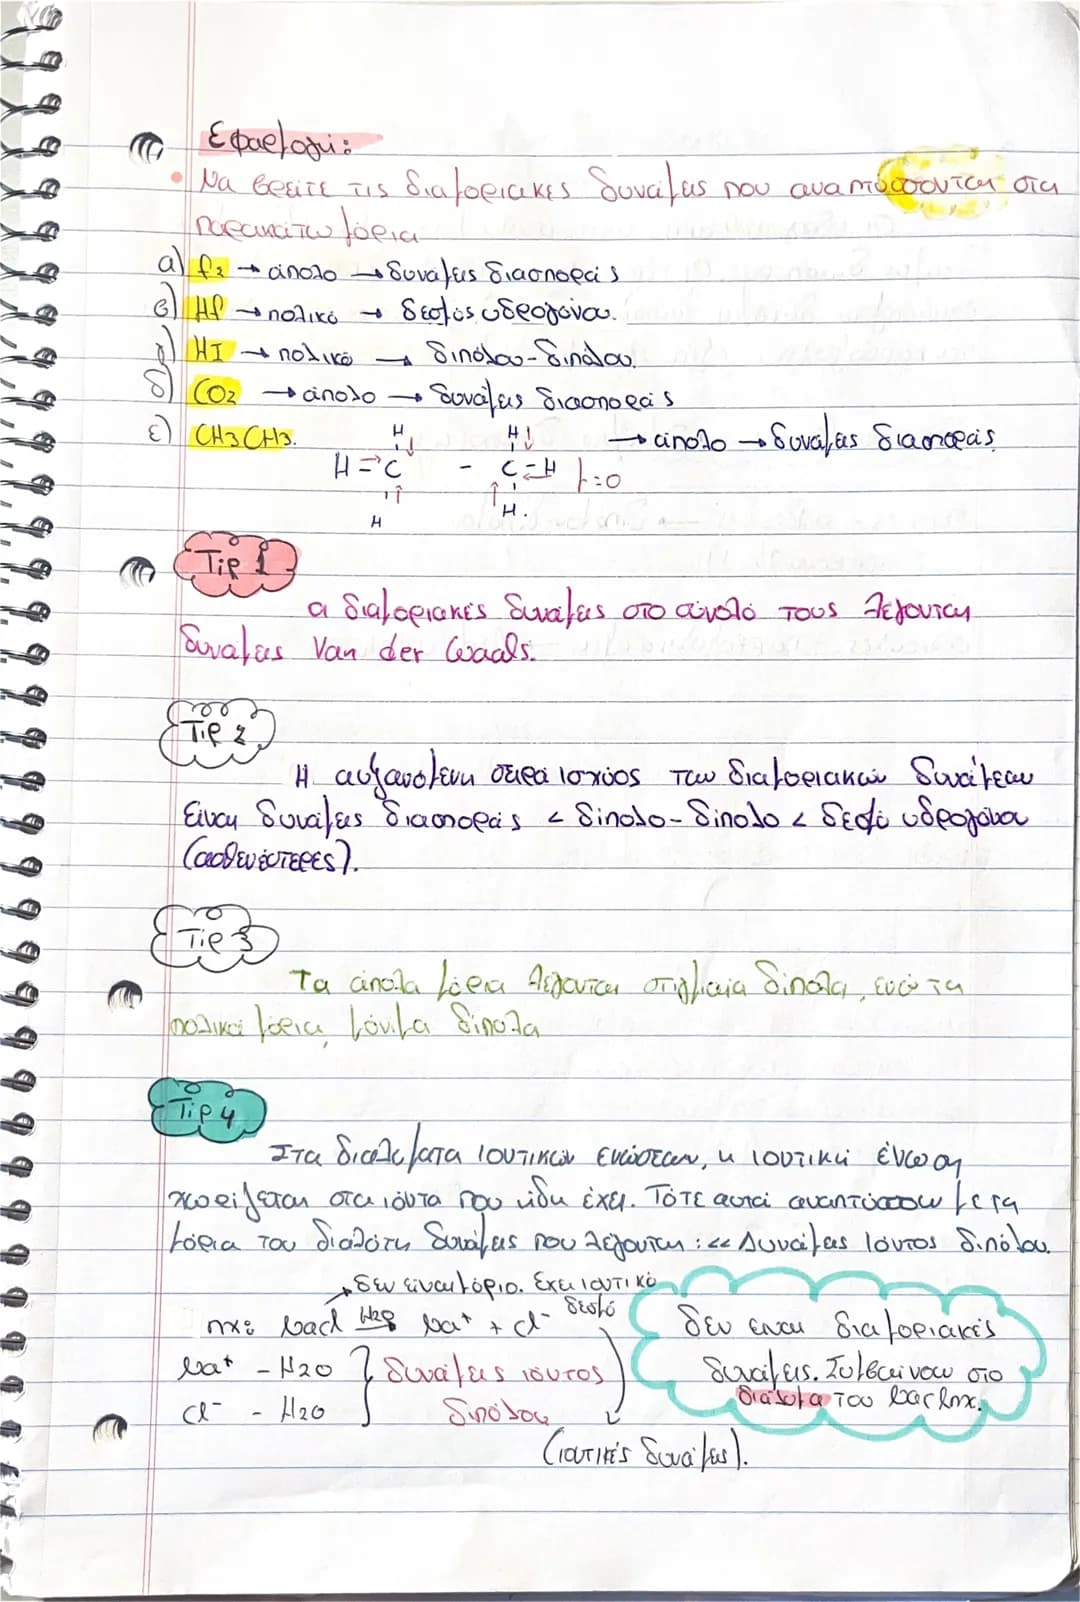 Εφαρμογή:
• Να βρείτε τις διαμοριακές δυνάμεις που αναπτύσσονται στα
παρακάτω μόρια
α) F2 → άπολο → δυνάμεις διασποράς
β) HF → πολικό → δεσμός υδρογόνου.
γ) HI → πολικό → διπόλου-διπόλου.
δ) CO2 → άπολο → δυνάμεις διασποράς
ε) CH3CH3. → άπολο → δυνάμεις διασποράς
H H
H - C - C - H μ=0
H H.
Tip 1
οι διαμοριακές δυνάμεις στο σύνολό τους λέγονται
δυνάμεις Van der Waals.
Tip 2
Η αυξανόμενη σειρά ισχύος των διαμοριακών δυνάμεων
είναι δυνάμεις διασποράς < δίπολο-δίπολο < δεσμό υδρογόνου
(ασθενέστερες).
Tip 3
Τα άπολα μόρια λέγονται στιγμιαία δίπολα, ενώ τα
πολικά μόρια, μόνιμα δίπολα
Tip 4
Στα διαλύματα ιοντικών ενώσεων, η ιοντική ένωση
χωρίζεται στα ιόντα που ήδη έχει. Τότε αυτά αναπτύσσουν με τα
μόρια του διαλύτη δυνάμεις που λέγονται: << Δυνάμεις ιόντος διπόλου.
→ δεν είναι μόριο. Έχει ιοντικό
δεσμό
πχ: NaCl H2O→ Na+ + Cl-
Na+ - H2O } δυνάμεις ιόντος
Cl- - H2O διπόλου
(ιοντικές δυνάμεις).
δεν είναι διαμοριακές
δυνάμεις. Συμβαίνουν στο
διάλυμα του NaCl πχ.